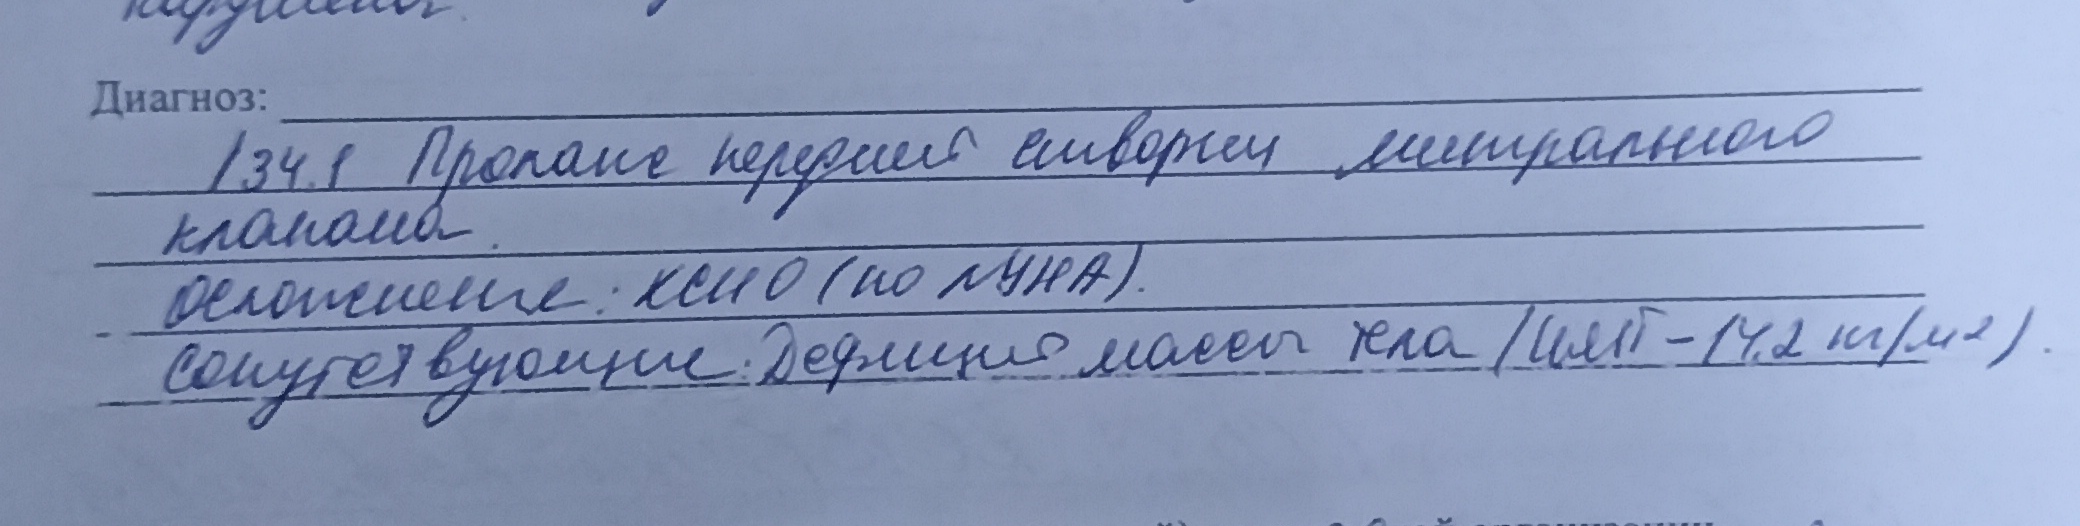 Диагноз:
I34.1 Пролапс передней створки митрального
клапана.
Осложнение: ХСН 0 (по NYHA).
Сопутствующие: Дефицит массы тела (ИМТ - 14.2 кг/м2).